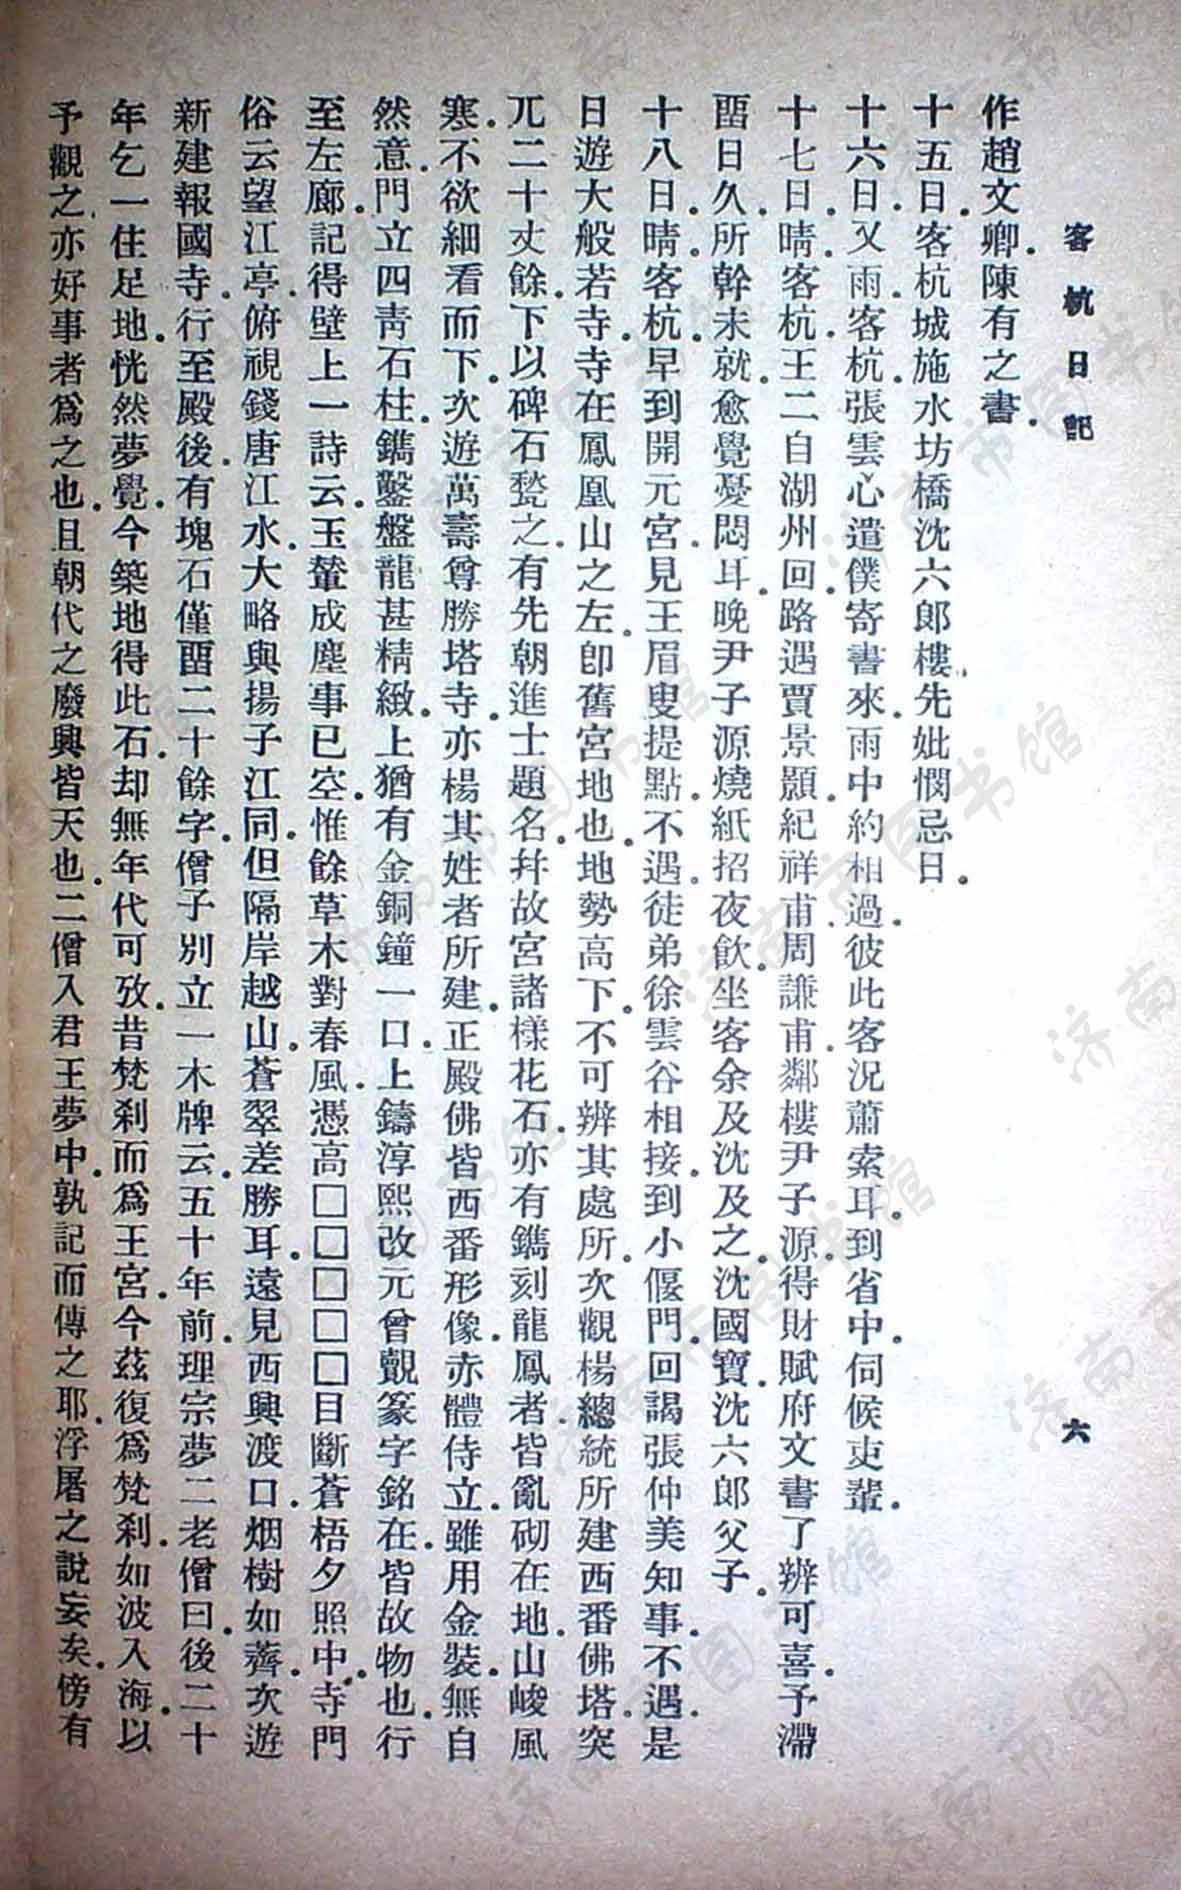 客杭日記 六
作趙文卿陳有之書。
十五日。客杭城施水坊橋沈六郎樓。先妣憫忌日。
十六日。又雨。客杭。張雲心遣僕寄書來。雨中約相過。彼此客況蕭索耳。到省中。伺候吏輩。
十七日。晴。客杭。王二自湖州回。路遇賈景顥。紀祥甫。周謙甫。鄰樓尹子源。得財賦府文書了辨。可喜。予滯
畱日久。所幹未就。愈覺憂悶耳。晚尹子源燒紙。招夜飲。坐客余及沈及之。沈國寶。沈六郎父子。
十八日。晴。客杭。早到開元宮。見王眉叟提點。不遇。徒弟徐雲谷相接。到小偃門。回謁張仲美知事。不遇。是
日遊大般若寺。寺在鳳凰山之左。卽舊宮地也。地勢高下。不可辨其處所。次觀楊總統所建西番佛塔。突
兀二十丈餘。下以碑石甃之。有先朝進士題名。幷故宮諸樣花石。亦有鐫刻龍鳳者。皆亂砌在地。山峻風
寒。不欲細看而下。次遊萬壽尊勝塔寺。亦楊其姓者所建。正殿佛皆西番形像。赤體侍立。雖用金裝。無自
然意。門立四靑石柱。鐫鑿盤龍甚精緻。上猶有金銅鐘一口。上鑄淳熙改元曾覿篆字銘在。皆故物也。行
至左廊。記得壁上一詩云。玉輦成塵事已空。惟餘草木對春風。憑高□□□□□目斷蒼梧夕照中。寺門
俗云望江亭。俯視錢唐江水。大略與揚子江同。但隔岸越山。蒼翠差勝耳。遠見西興渡口。烟樹如薺。次遊
新建報國寺。行至殿後。有塊石僅畱二十餘字。僧子別立一木牌云。五十年前。理宗夢二老僧曰。後二十
年乞一住足地。恍然夢覺。今築地得此石。却無年代可攷。昔梵刹而爲王宮。今茲復爲梵刹。如波入海。以
予觀之。亦好事者爲之也。且朝代之廢興皆天也。二僧入君王夢中。孰記而傳之耶。浮屠之說妄矣。傍有